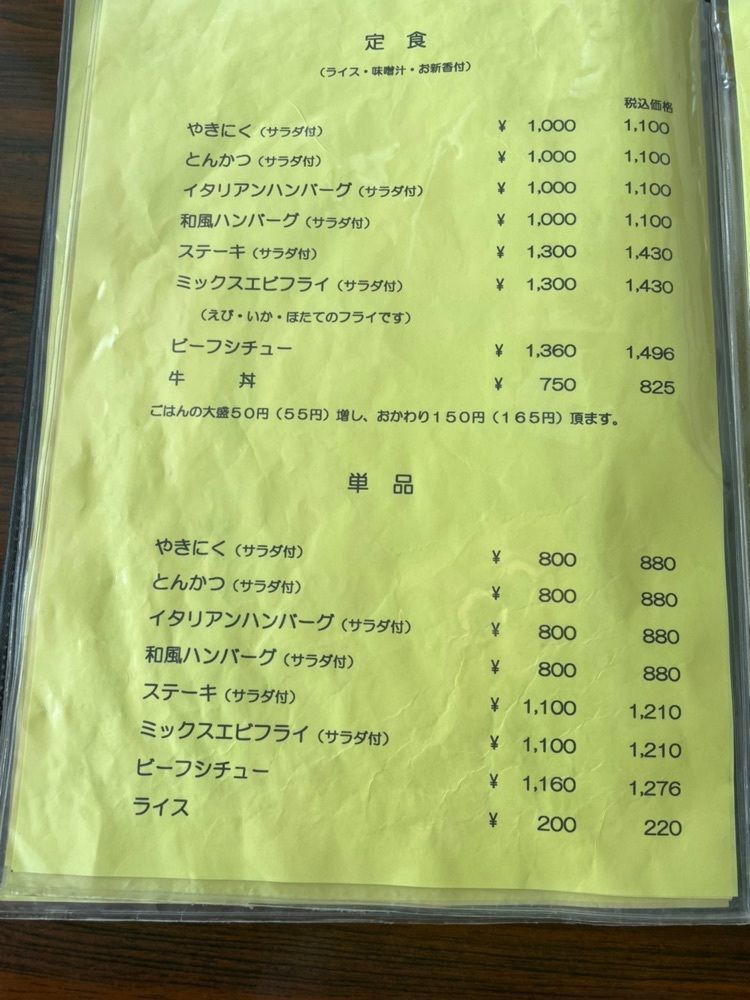 定 食
（ライス・味噌汁・お新香付）
税込価格
やきにく（サラダ付） ¥ 1,000 1,100
とんかつ（サラダ付） ¥ 1,000 1,100
イタリアンハンバーグ（サラダ付） ¥ 1,000 1,100
和風ハンバーグ（サラダ付） ¥ 1,000 1,100
ステーキ（サラダ付） ¥ 1,300 1,430
ミックスエビフライ（サラダ付） ¥ 1,300 1,430
（えび・いか・ほたてのフライです）
ビーフシチュー ¥ 1,360 1,496
牛 丼 ¥ 750 825
ごはんの大盛５０円（５５円）増し、おかわり１５０円（１６５円）頂ます。
単 品
やきにく（サラダ付） ¥ 800 880
とんかつ（サラダ付） ¥ 800 880
イタリアンハンバーグ（サラダ付） ¥ 800 880
和風ハンバーグ（サラダ付） ¥ 800 880
ステーキ（サラダ付） ¥ 1,100 1,210
ミックスエビフライ（サラダ付） ¥ 1,100 1,210
ビーフシチュー ¥ 1,160 1,276
ライス ¥ 200 220